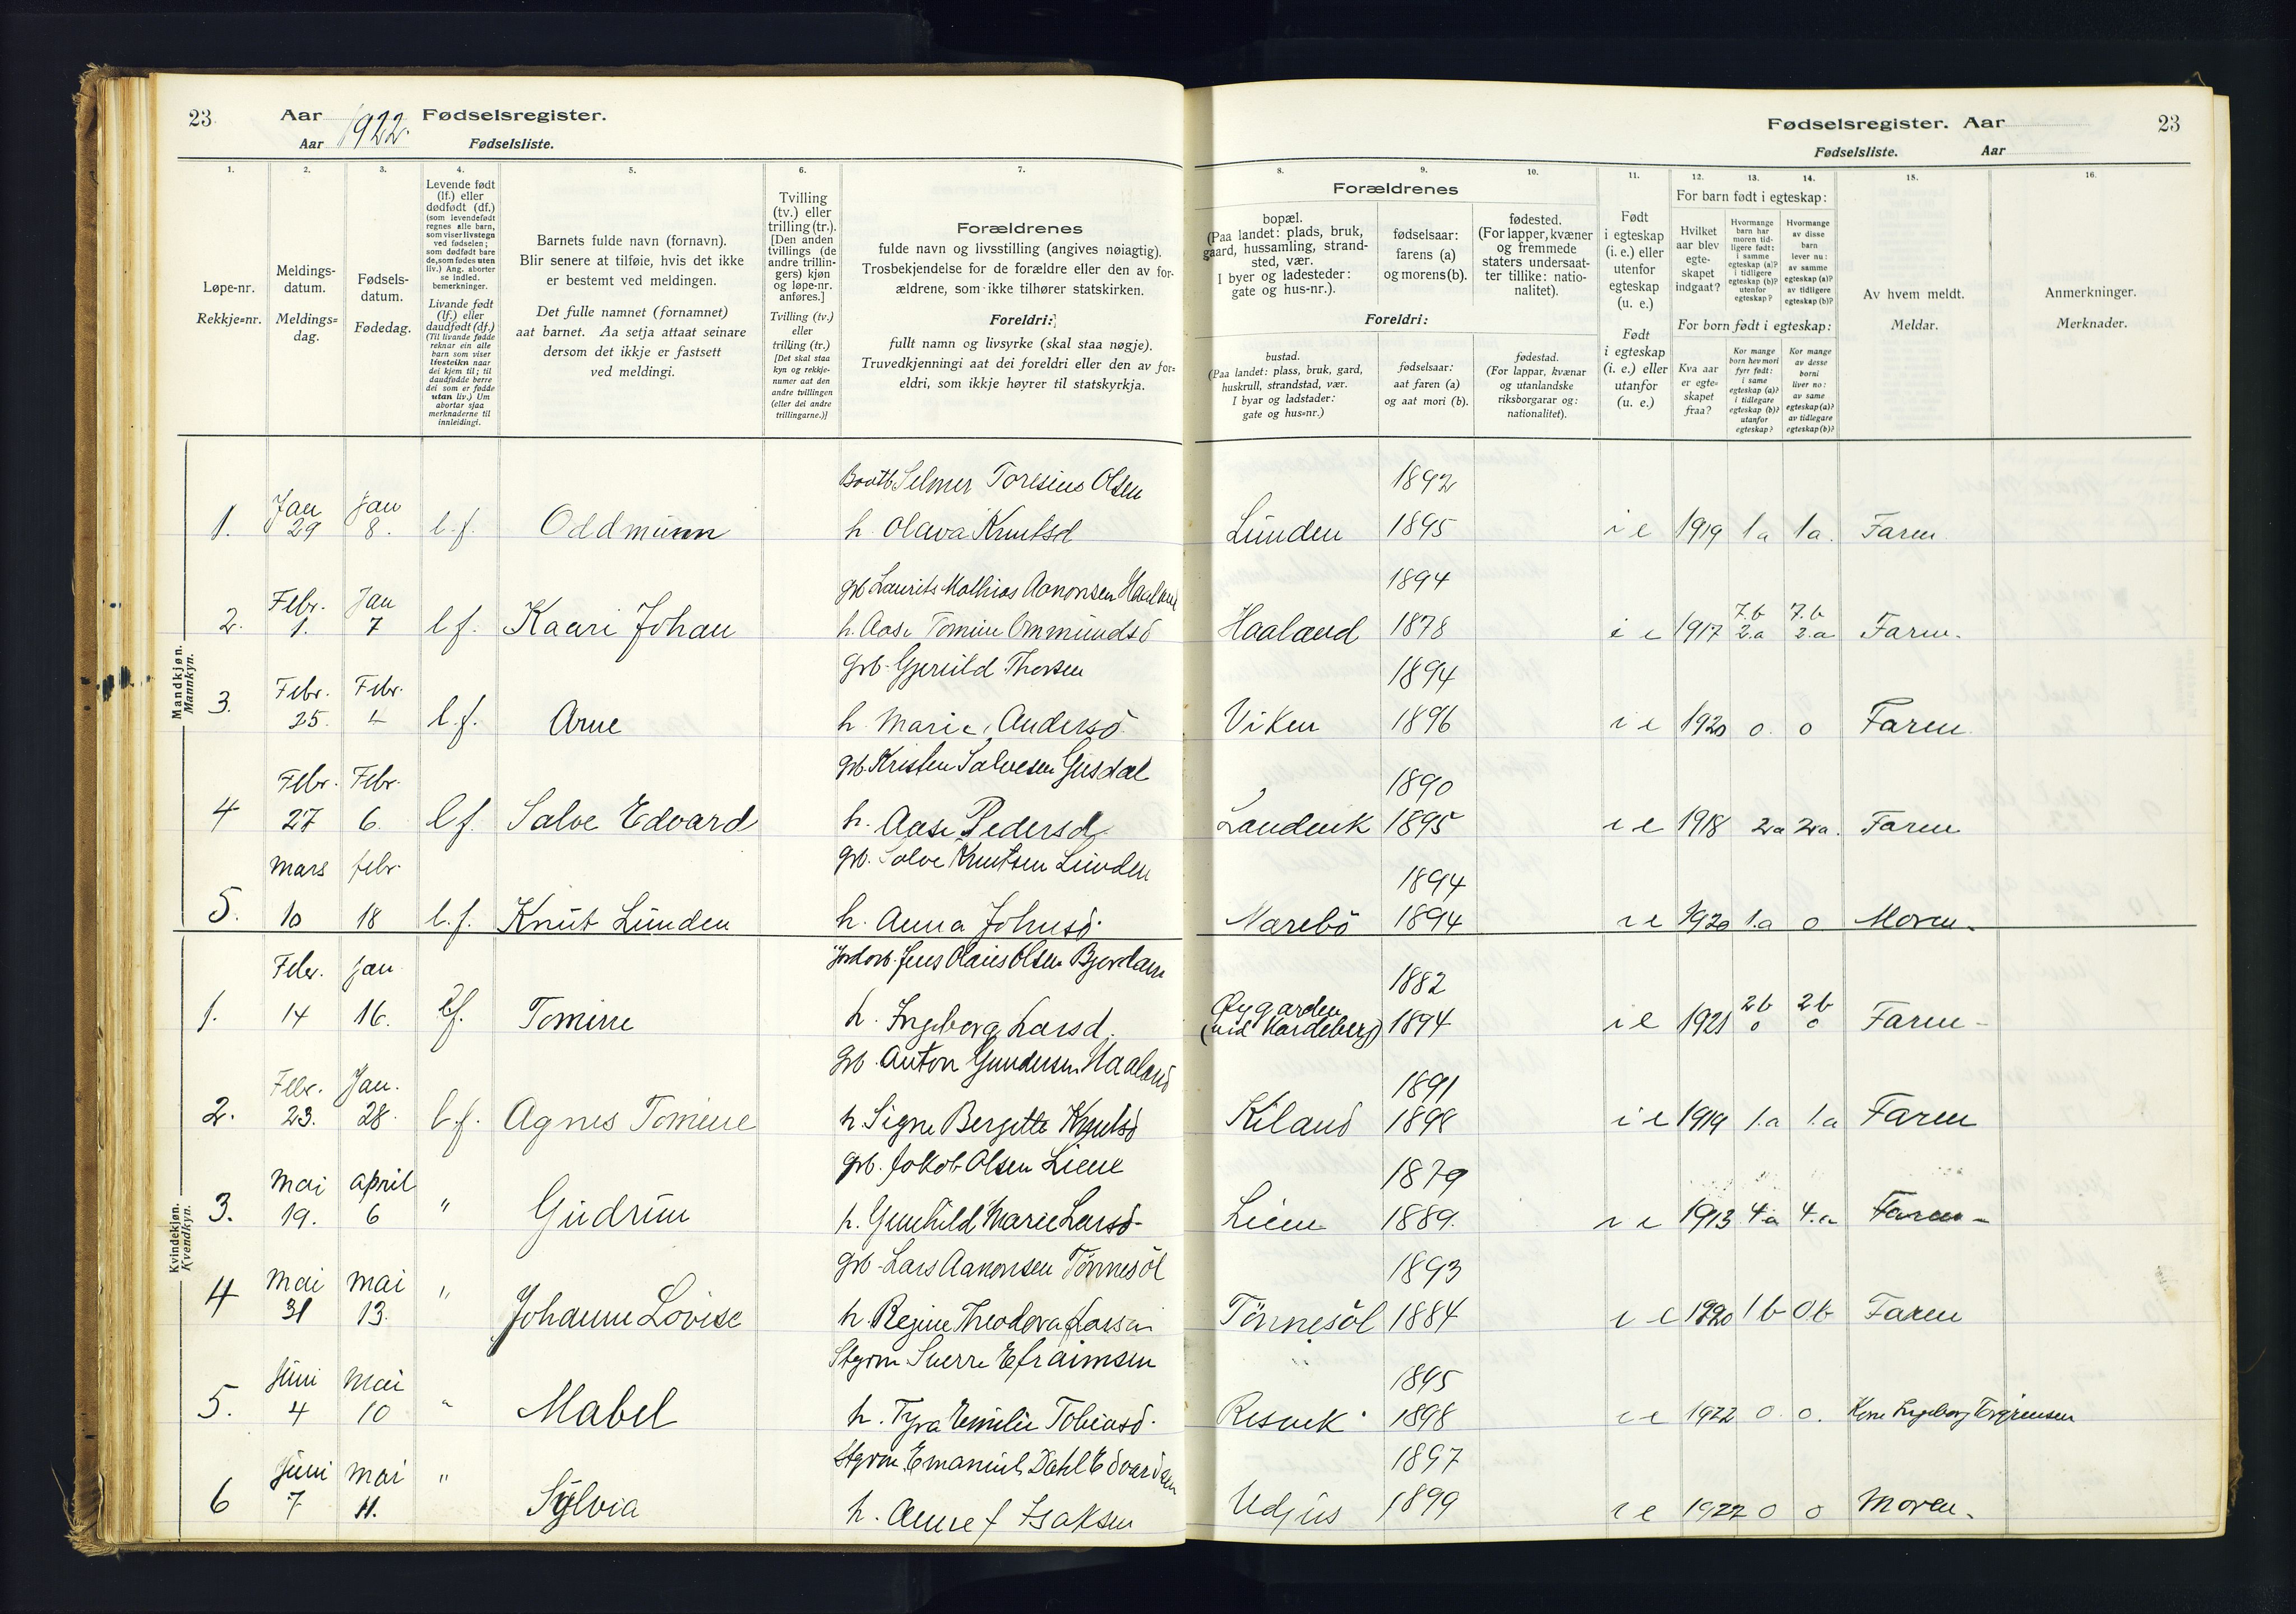 23
Aar 1922. Fødselsregister.
Aar Fødselsliste.
1.
2.
3.
4.
5.
6.
7.
Løpe-nr.
Rekkje=nr.
Meldings-
datum.
Meldings=
dag.
Fødsels-
datum.
Fødedag.
Levende født
(lf.) eller
dødfødt (df.)
(som levendefødt
regnes alle barn,
som viser livstegn
ved fødselen;
som dødfødt bare
de, som fødes uten
liv.) Ang. aborter
se indled.
bemerkninger.
Livande født
(lf.) eller
daudfødt (df.)
(Til livande fødde
reknar ein alle
barn som viser
livsteikn naar
dei kjem til; til
daudfødde berre
dei som er fødde
utan liv.) Um
abortar sjaa
merknaderne til
innleidingi.
Barnets fulde navn (fornavn).
Blir senere at tilføie, hvis det ikke
er bestemt ved meldingen.
Det fulle namnet (fornamnet)
aat barnet. Aa setja attaat seinare
dersom det ikkje er fastsett
ved meldingi.
Tvilling
(tv.) eller
trilling (tr.).
[Den anden
tvillings (de
andre trillin-
gers) kjøn
og løpe-nr.
anføres.]
Tvilling (tv.)
eller
trilling (tr.)
[Det skal staa
kyn og rekkje-
numer aat den
andre tvillingen
(eller dei andre
trillingarne.)]
Forældrenes
fulde navn og livsstilling (angives nøiagtig).
Trosbekjendelse for de forældre eller den av for-
ældrene, som ikke tilhører statskirken.
Foreldri:
fullt namn og livsyrke (skal staa nøgje).
Truvedkjenningi aat dei foreldri eller den av for=
eldri, som ikkje høyrer til statskyrkja.
Mandkjøn.
Mannkyn.
Jan Jan Selmer Toresius Olsen
1. 29 8. l.f. Oddmunn h. Olava Knutsd
Febr. Jan gb Laurits Mathias Aanonsen Haaland
2. 1. 7 l f. Kaari Johan h. Aase Tomine Ommundsd
Febr. Febr. Grb. Gjerulf Thorsen
3. 25. 4 l.f. Arne h. Marie Andersd.
Febr. Febr. gb. Kristen Salvesen Gusdal
4 27 6. l f. Salve Edvard h. Aase Pedersd
Mars febr. gb. Salve Knutsen Lunden
5. 10 18 l.f. Knut Lunden h. Anna Johnsd.
Kvindekjøn.
Kvendkyn.
Febr. Jan Jens Olaus Olsen
1. 14 16. lf. Tomine h. Ingeborg Larsd.
Febr. Jan. gb. Anton Gundersen Haaland
2. 23. 28. l f. Agnes Tomine h. Signe Bergitte Knutsd
Mai april gb. Jakob Olsen Liene
3. 19. 6 " Gudrun h. Gunhild Marie Larsd-
Mai Mai gb. Lars Aanonsen Tönnesöl
4 31 13. " Johanne Lovise h Regine Theodora
Juni Mai Stgrm Sverre Efraimsen
5. 4 10 " Mabel h. Tyra Emilie Tobiasd.
Juni Mai Stgrm. Emanuel Dahl Edvardsen
6 7 11. " Sylvia h. Anne f Isaksen
Fødselsregister. Aar
Fødselsliste. Aar
23
8.
9.
10.
11.
12.
13.
14.
15.
16.
Forældrenes
bopæl.
(Paa landet: plads, bruk,
gaard, hussamling, strand-
sted, vær.
I byer og ladesteder:
gate og hus-nr.).
fødselsaar:
farens (a)
og morens (b).
fødested.
(For lapper, kvæner
og fremmede
staters undersaat-
ter tillike: natio-
nalitet).
Foreldri:
bustad.
(Paa landet: plass, bruk, gard,
huskrull, strandstad, vær.
I byar og ladstader:
gate og hus=nr.)
fødselsaar:
aat faren (a)
og aat mori (b).
fødestad.
(For lappar, kvænar
og utanlandske
riksborgarar og:
nationalitet).
Født
i egteskap
(i. e.) eller
utenfor
egteskap
(u. e.)
Født
i egteskap
(i. e.) eller
utanfor
(u. e.)
For barn født i egteskap:
Hvilket
aar blev
egte-
skapet
indgaat?
Hvormange
barn har
moren tid-
ligere født:
i samme
egteskap (a)?
i tidligere
egteskap (b)?
utenfor
egteskap?
Hvormange
av disse
barn
lever nu:
av samme
egteskap (a)?
av tidligere
egteskap (b)?
For born født i egteskap:
Kva aar
er egte=
skapet
fraa?
Kor mange
born hev mori
fyrr født:
i same
egteskap (a)?
i tidlegare
egteskap (b)?
utanfor
egteskap?
Kor mange
av desse
borni
liver no:
av same
egteskap (a)?
av tidlegare
egteskap (b)?
Av hvem meldt.
Meldar.
Anmerkninger.
Merknader.
1892
Lunden 1895 i e 1919 1a 1a. Faren
1894 7.b 7.b
Haaland 1878 i e 1917 2.a 2.a Faren.
1894
Viken 1896 i e 1920 0. 0 Faren
1890
Landvik 1895 i e 1918 2a 2a. Faren
1894
Narebö 1894 i e 1920 1.a 0 Moren.
1882 2b 2b
Øygarden
(vid Kardeberg) 1894 i e 1921 0 0 Faren -
1891
Kiland 1898 i e 1919 1.a 1.a Faren
1879
Liene 1889. i e 1913 4.a 4.a Faren -
1893
Tönnesöl 1884 i e 1920 1 b 0.b Faren
1895
Resvik 1898 i e 1922 0. 0. Kone Ingeborg Torgrensen
1897
Udjus 1899 i e 1922 0 0 Moren.